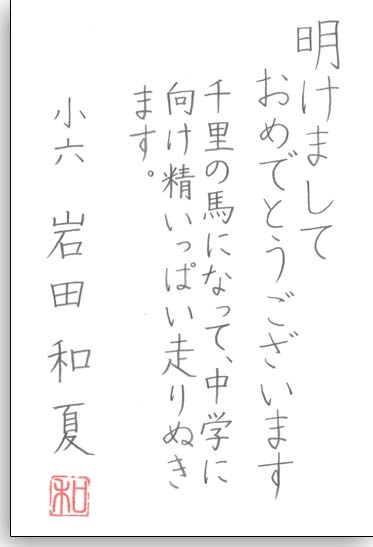 明けまして
おめでとうございます
千里の馬になって、中学に
向け精いっぱい走りぬき
ます。
小六 岩田和夏
和